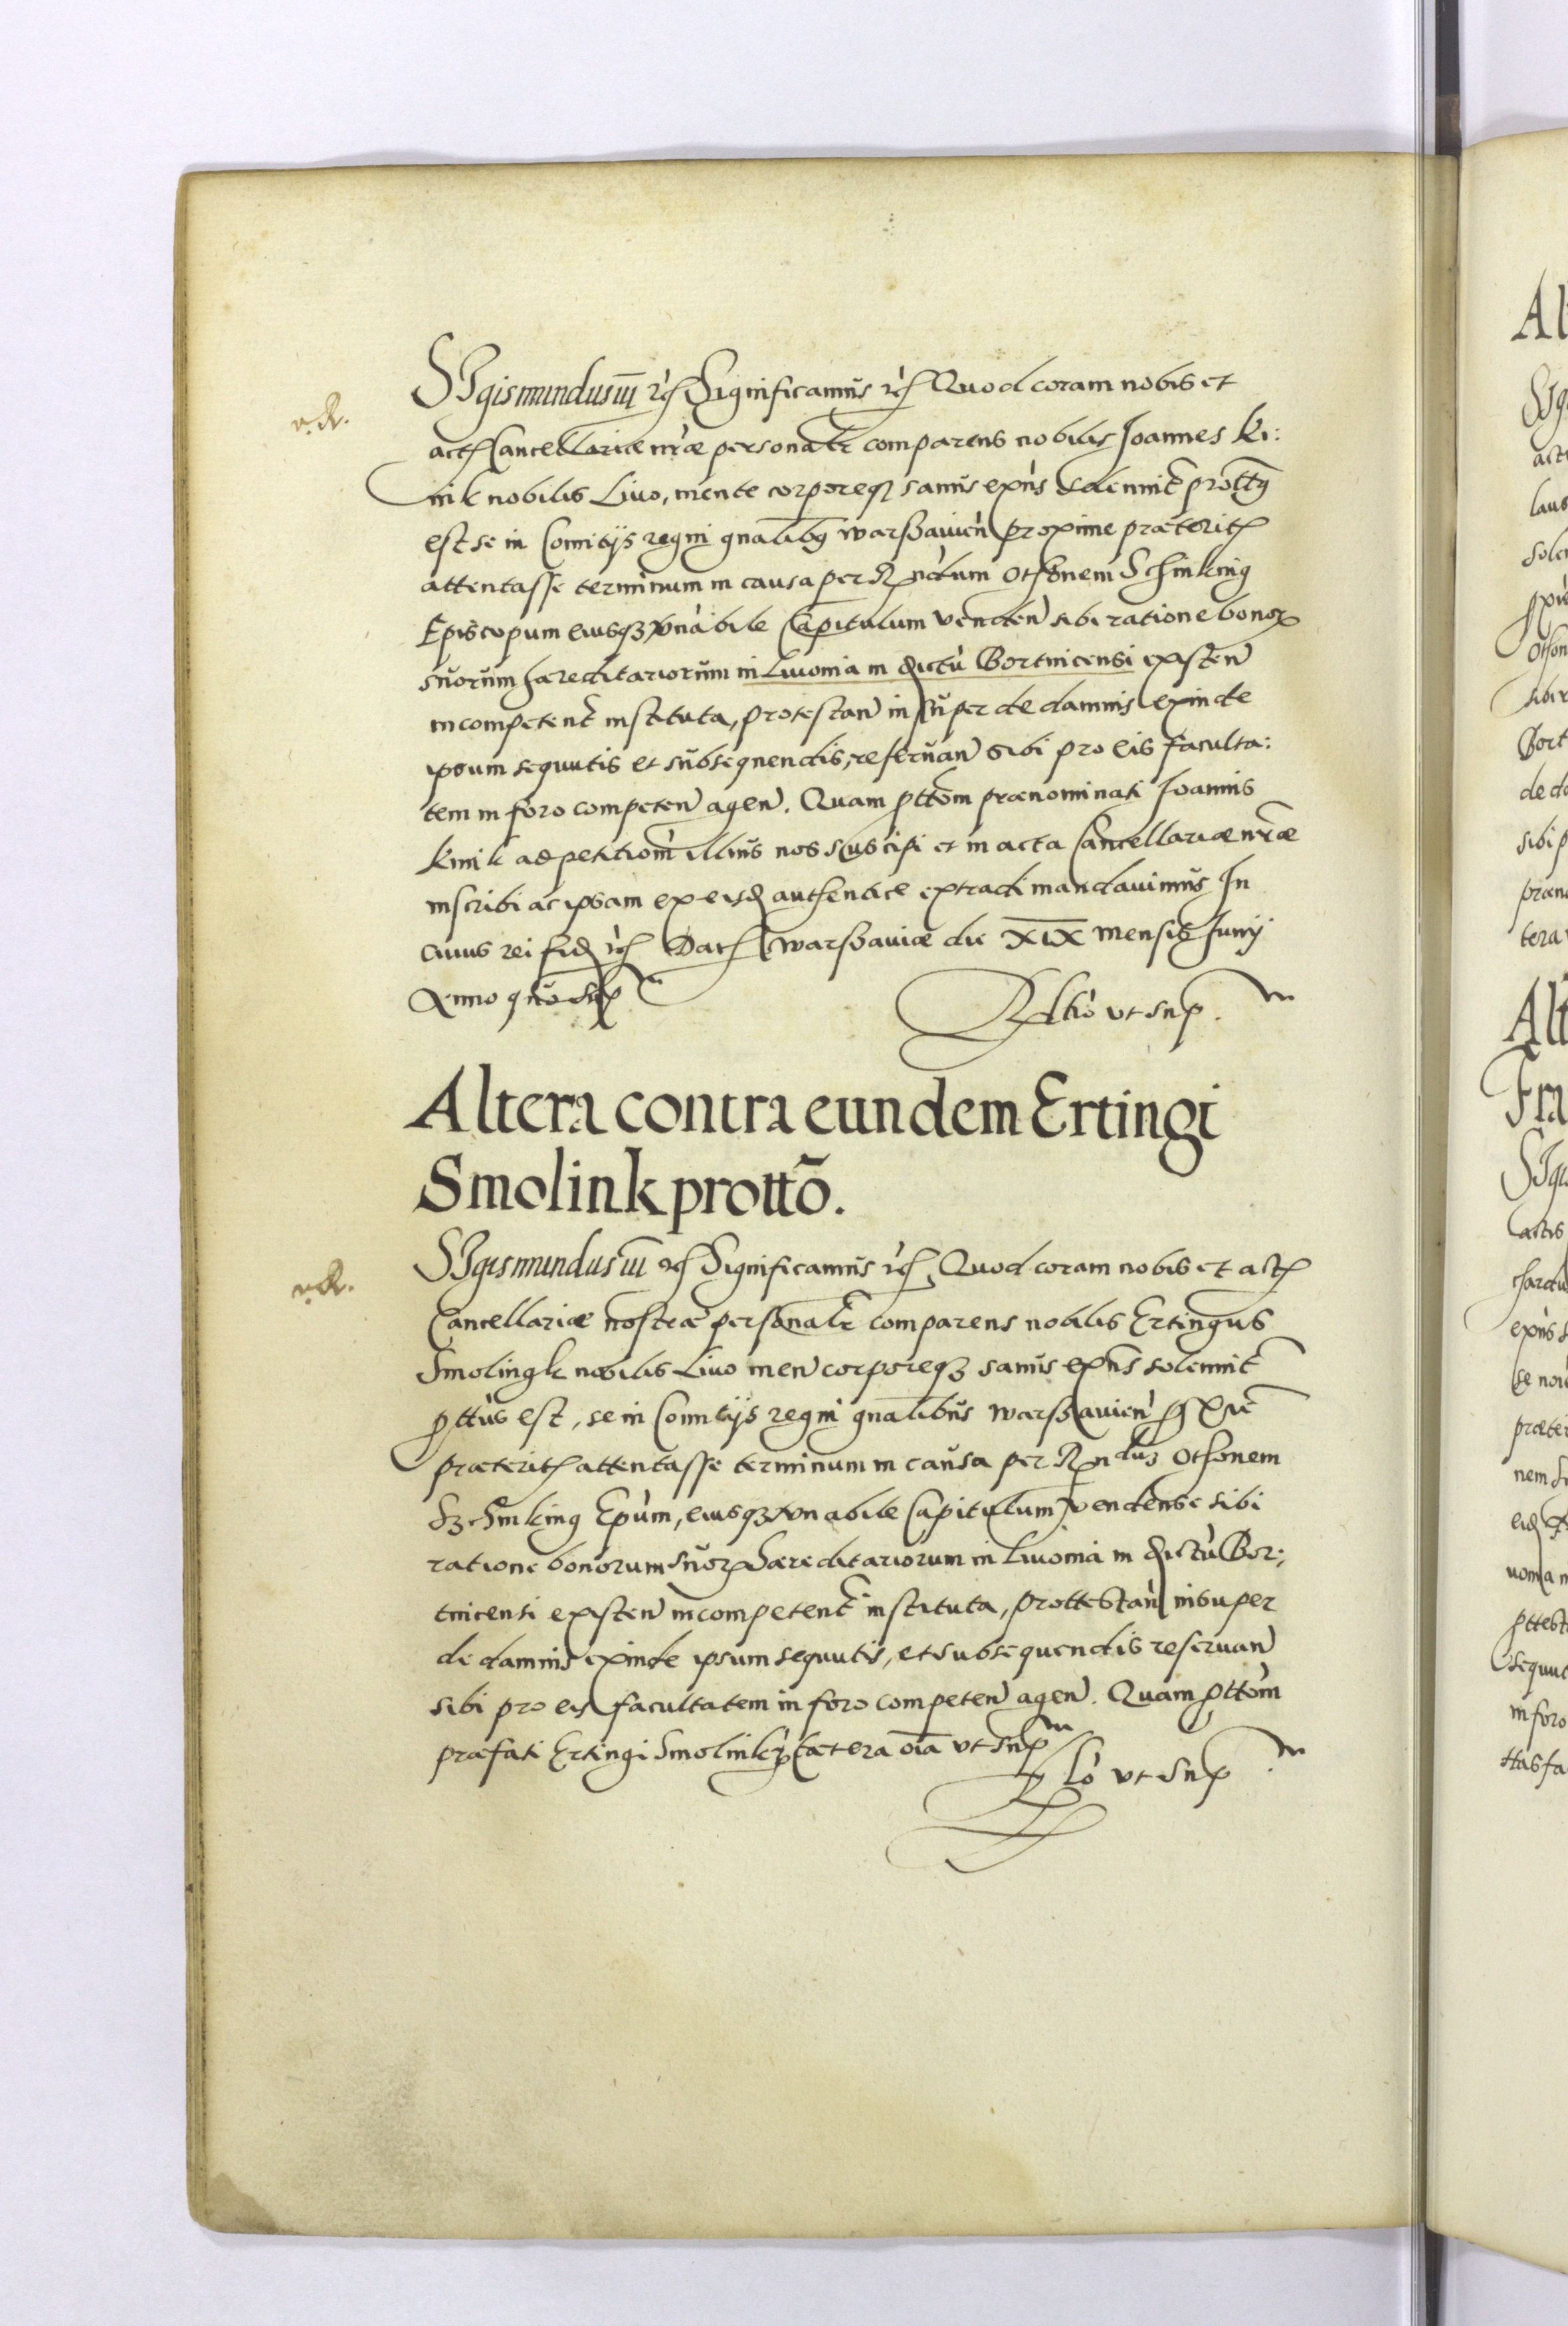 SIgismundus iii rc̃ Significamus rc̃ Quod coram nobis et
v. R.
act̃ Cancellariæ nr̃æ personalr̃ comparens nobilis Joannes Ki:
nik nobilis Livo, mente corporeq̃ sanus exñs solennit̃ prottꝰ
est se in Comitijs regni gnalibꝰ warschavien̄ proxime præterit̃
attentasse terminum in causa per Rn̄dum Othonem Schinking
Episcopum eiusq̃ vnabile Capitulum venden̄ sibi ratione bonoꝝ
suorum hæreditariorum in Livonia in dictu Bortnicensi existen̄
incompetent̃ instituta, protestan̄ insuper de damnis exinde
ipsum sequutis et subsequendis, reseruan̄ sibi pro eis faculta:
tem in foro competen̄ agen̄. Quam ꝓttom̃ prænominati Joannis
Kinik ad petitiom̃ illius nos suscipi et in acta Cancellariæ nr̃æ
inscribi ac ipsam ex eisd̃ authentice extradi mandavimus In
cuius rei fid̃ rc̃ Dat̃ warschaviæ die XIX mensis Junij
Anno quo sup̃
Rltio vt sup̃.
Altera contra eundem Ertingi
Smolink prottõ.
SIgismundus iii rc̃ Significamus rc̃, Quod coram nobis et act̃
v. R.
Cancellariæ nostræ personalr̃ comparens nobilis Ertingus
Smolingk nobilis Livo men̄ corporeq̃ sanus exñs solennit̃
ꝓttus est, se in Comitijs regni gnalibus warschavien̄ ꝓxie
præterit̃ attentasse terminum in causa per Rndus Othonem
Schinking Epum̃, eiusq̃ vnabile Capitulum vendense sibi
ratione bonorum suoꝝ hæreditariorum in Livonia in dictu Bor:
tnicensi existen̄ incompetent̃ instituta, prottestan̄ insuper
de damnis exinde ipsum sequutis, et subsequendis reseruan̄
sibi pro eis facultatem in foro competen̄ agen̄. Quam ꝓttom̃
præfati Ertingi Smolink, cætera oĩa vt sup̃
Rlo vt sup̃